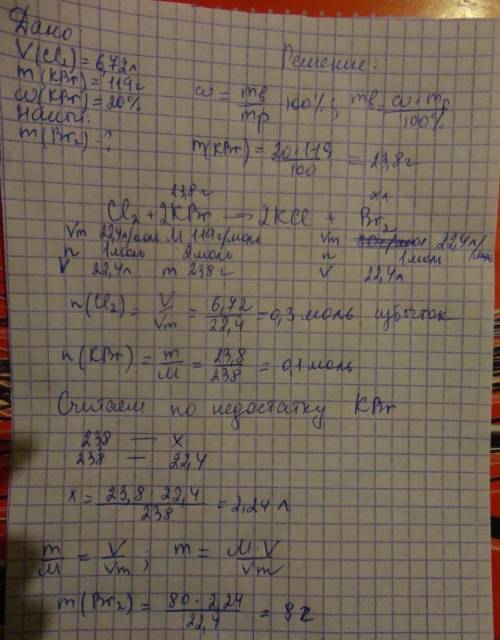 Дано:
V(Cl₂) = 6,72л
m(KBr) = 119г
ω(KBr) = 20%
Найти:
m(Br₂) - ?
Решение:
ω = mв/mр 100%; mв = ω·mр/100%
m(KBr) = 20·119/100 = 23,8г
23,8г xл
Cl₂ + 2KBr → 2KCl + Br₂
Vm 22,4л/моль M 119г/моль Vm 22,4л/моль
n 1моль 2моль n 1моль
V 22,4л m 238г V 22,4л
n(Cl₂) = V/Vm = 6,72/22,4 = 0,3 моль избыток
n(KBr) = m/M = 23,8/238 = 0,1 моль
Считаем по недостатку KBr
238 — x
238 — 22,4
x = 23,8·22,4/238 = 2,24 л
m/M = V/Vm; m = M·V/Vm
m(Br₂) = 80·2,24/22,4 = 8г